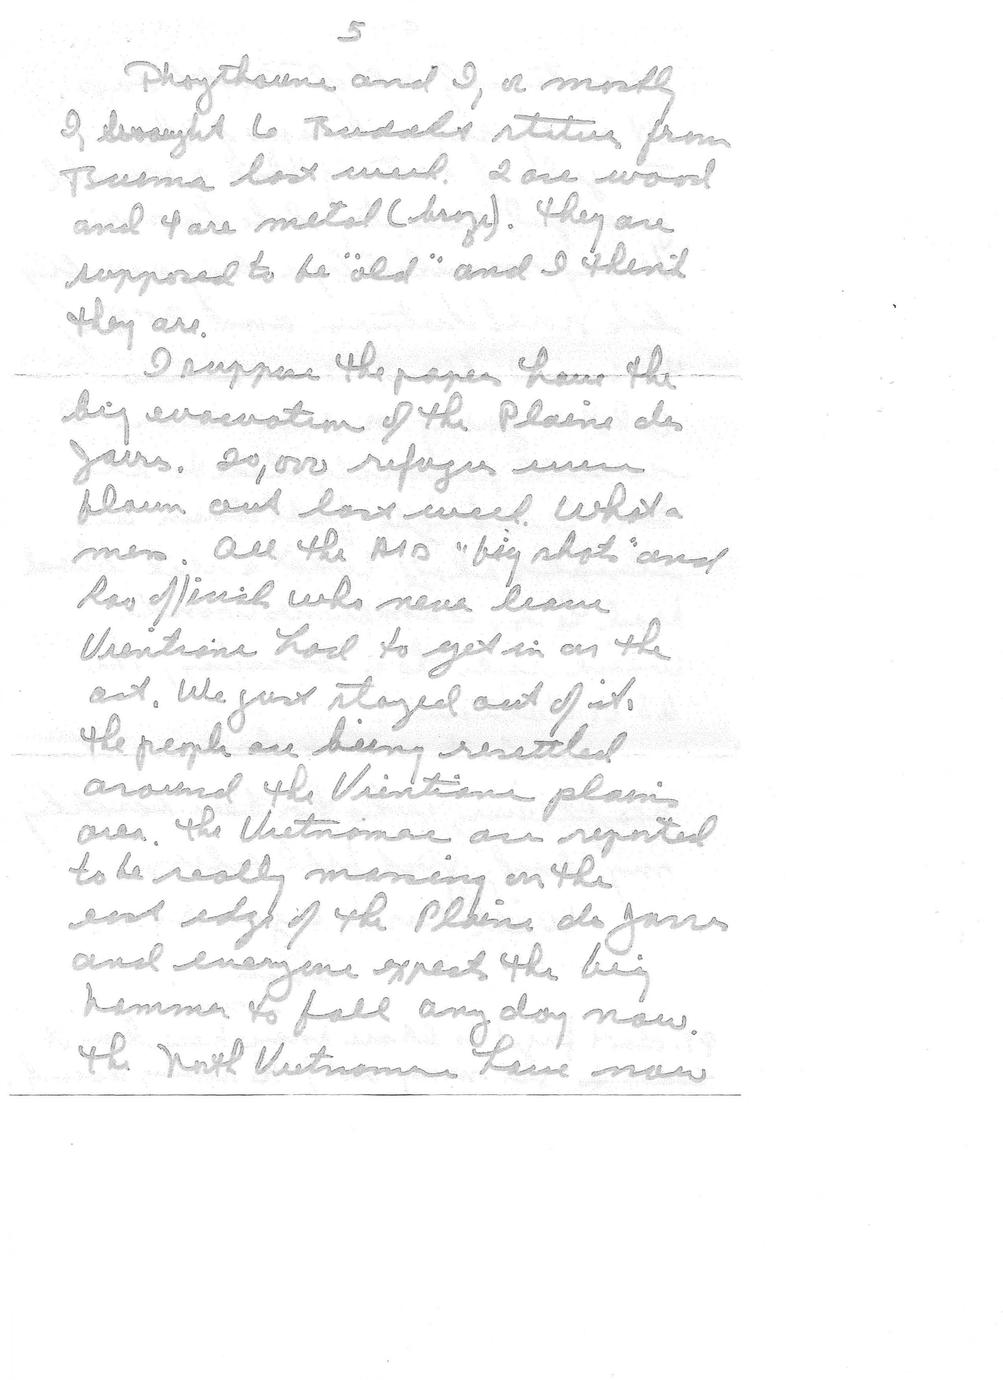 5
Phoythoune and I, or mostly
I, brought 6 Buddha statues from
Burma last week. 2 are wood
and 4 are metal (broze). They are
supposed to be "old" and I think
they are.
I suppose the papers have the
big evacuation of the Plaine des
Jarres. 20,000 refugees were
flown out last week. What a
mess. All the AID "big shots" and
Lao officials who never leave
Vientiane had to get in on the
act. We just stayed out of it.
The people are being resettled
around the Vientiane plains
area. The Vietnamese are reported
to be really massing on the
east edge of the Plaine des Jarres
and everyone expects the big
hammer to fall any day now.
The North Vietnamese have now